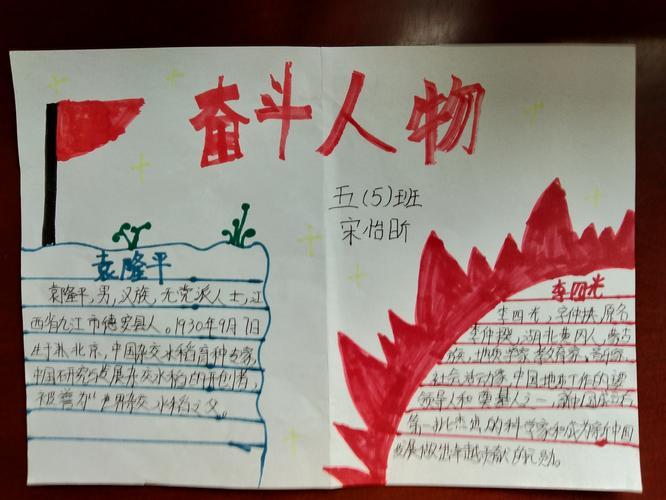 奋斗人物
五(5)班
宋怡昕
袁隆平
袁隆平,男,汉族,无党派人士,江
西省九江市德安县人。1930年9月7日
生于北京,中国杂交水稻育种专家,
中国研究与发展杂交水稻的开创者,
被誉为"世界杂交水稻之父。
李四光
李四光,字仲揆,原名
李仲揆,湖北黄冈人,蒙古
族,地质学家、教育家、
社会活动家,中国地质工作的
领导人和奠基人之一,新中国成立后
第一批杰出的科学家和为新中国
发展做出卓越贡献的元勋。